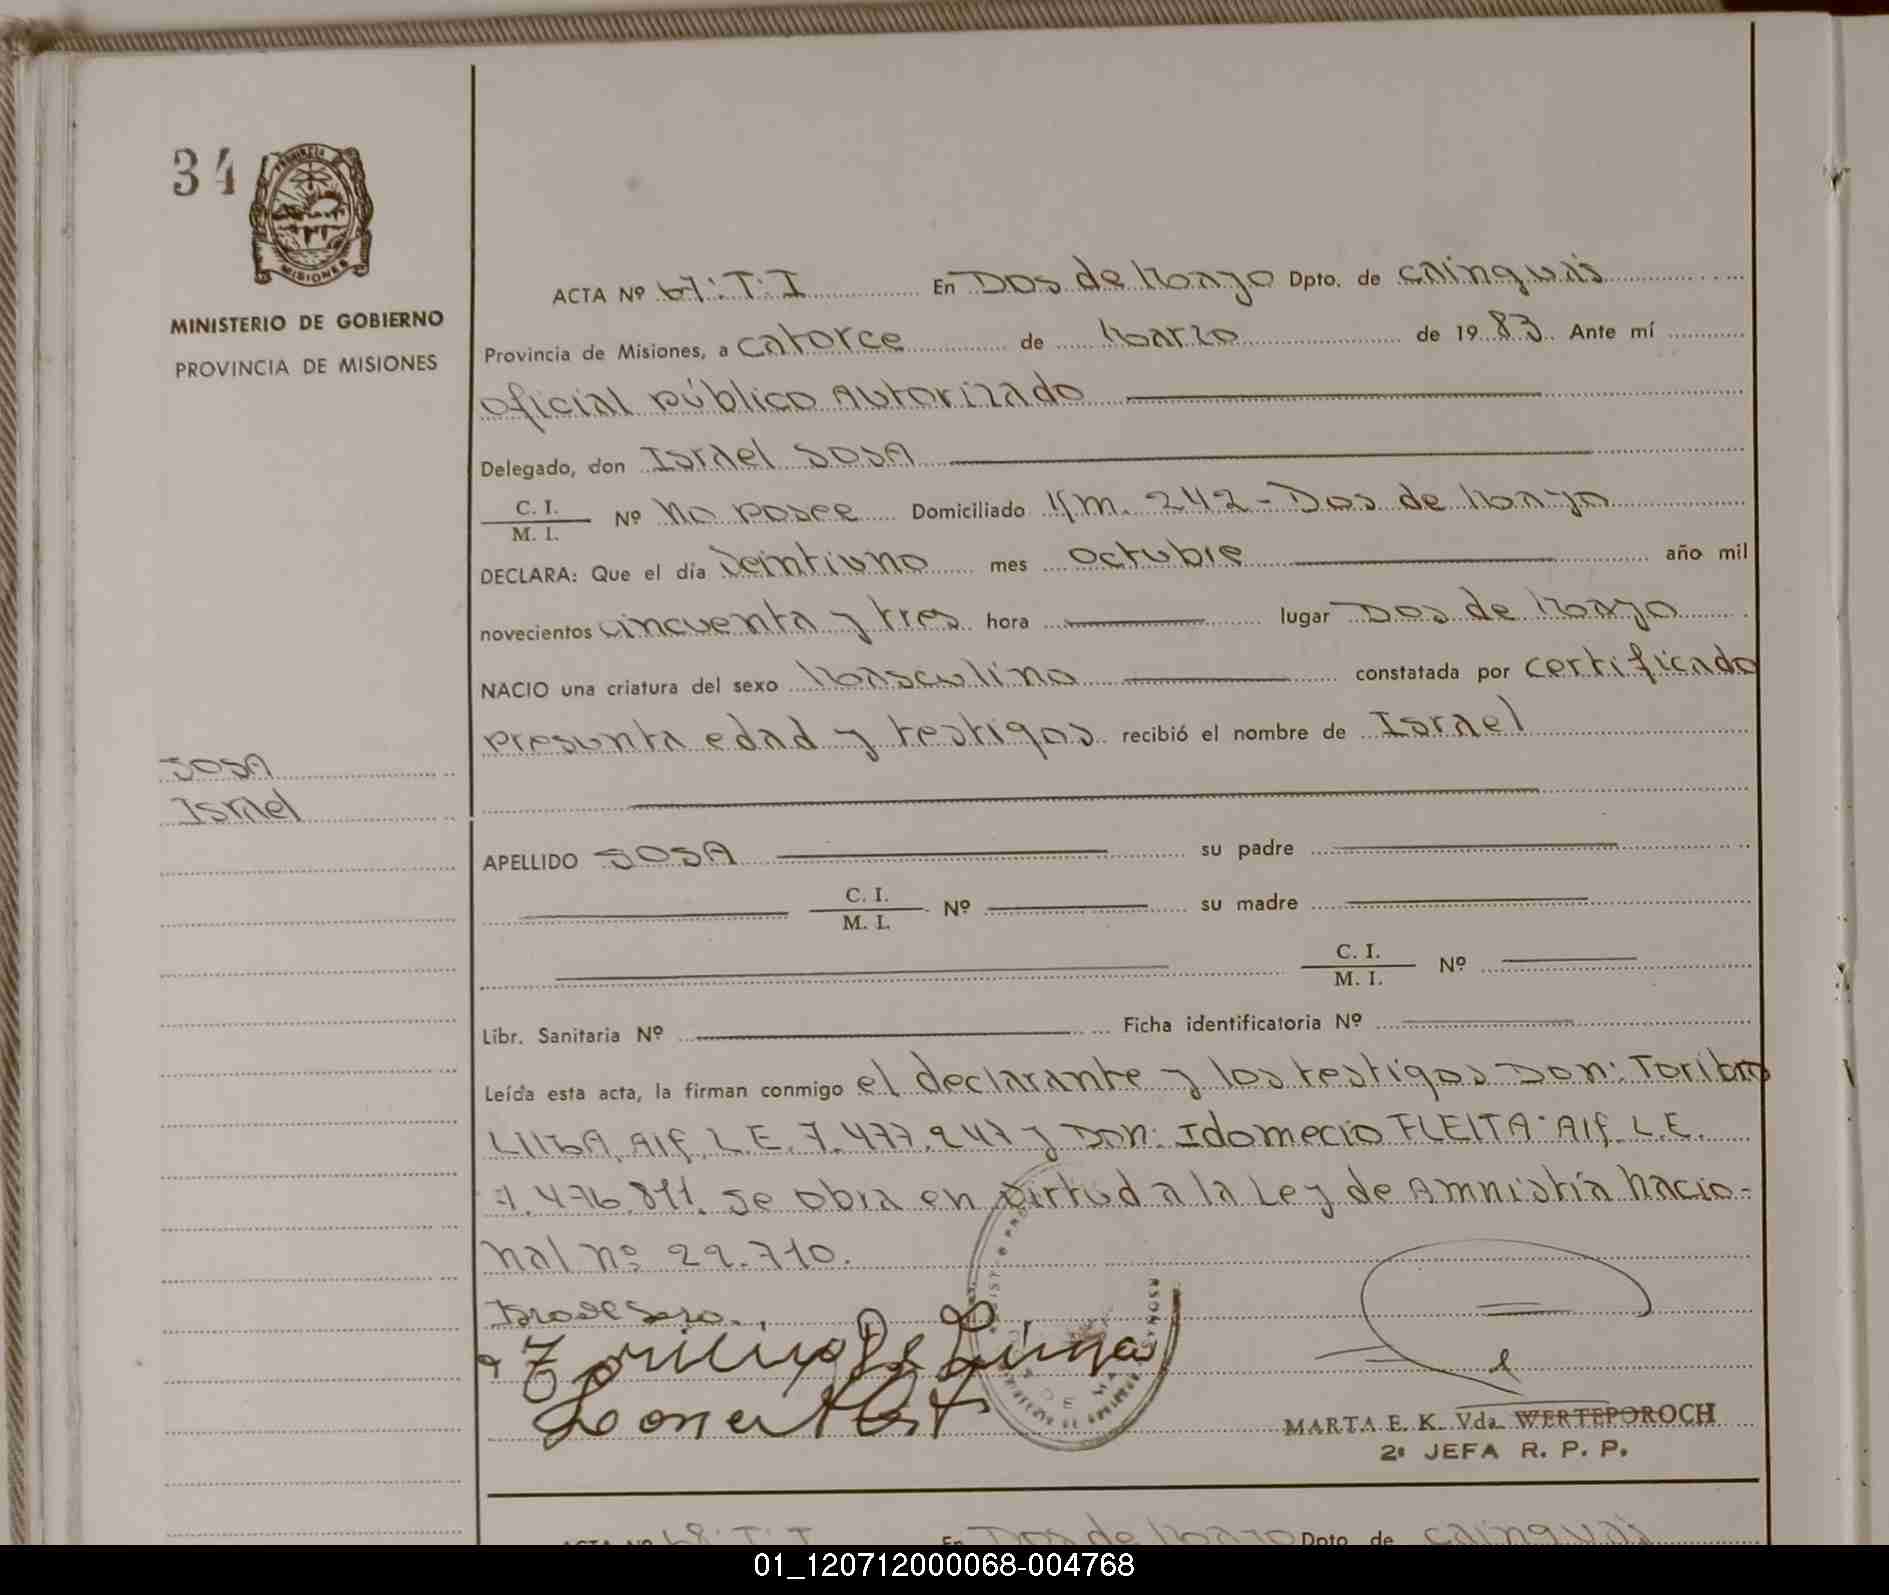 34
MISIONES
MINISTERIO DE GOBIERNO
PROVINCIA DE MISIONES
ACTA Nº 67: T: I En Dos de Mayo Dpto. de cainguás
Provincia de Misiones, a catorce de Marzo de 1983. Ante mí
oficial público Autorizado
Delegado, don Israel SOSA
C. I.
M. I. Nº No posee Domiciliado Km. 242 - Dos de Mayo
DECLARA: Que el día veintiuno mes octubre año mil
novecientos cincuenta y tres hora lugar Dos de Mayo
NACIO una criatura del sexo Masculino constatada por certificado
presunta edad y testigos recibió el nombre de Israel
SOSA
Israel
APELLIDO SOSA su padre
C. I.
M. I. Nº su madre
C. I.
M. I. Nº
Libr. Sanitaria Nº Ficha identificatoria Nº
Leída esta acta, la firman conmigo el declarante y los testigos Don: Toribio
Alf. L.E. 7.477.247 y Don: Idomecio FLEITA Alf. L.E.
7.476.811. se obra en virtud a la Ley de Amnistía Nacio-
nal nº 22.710.
Israel Sosa.
MARTA E. K. Vda. WERTEPOROCH
2ª JEFA R. P. P.
ACTA Nº 68: T: I En Dos de Mayo Dpto. de cainguás
01_120712000068-004768